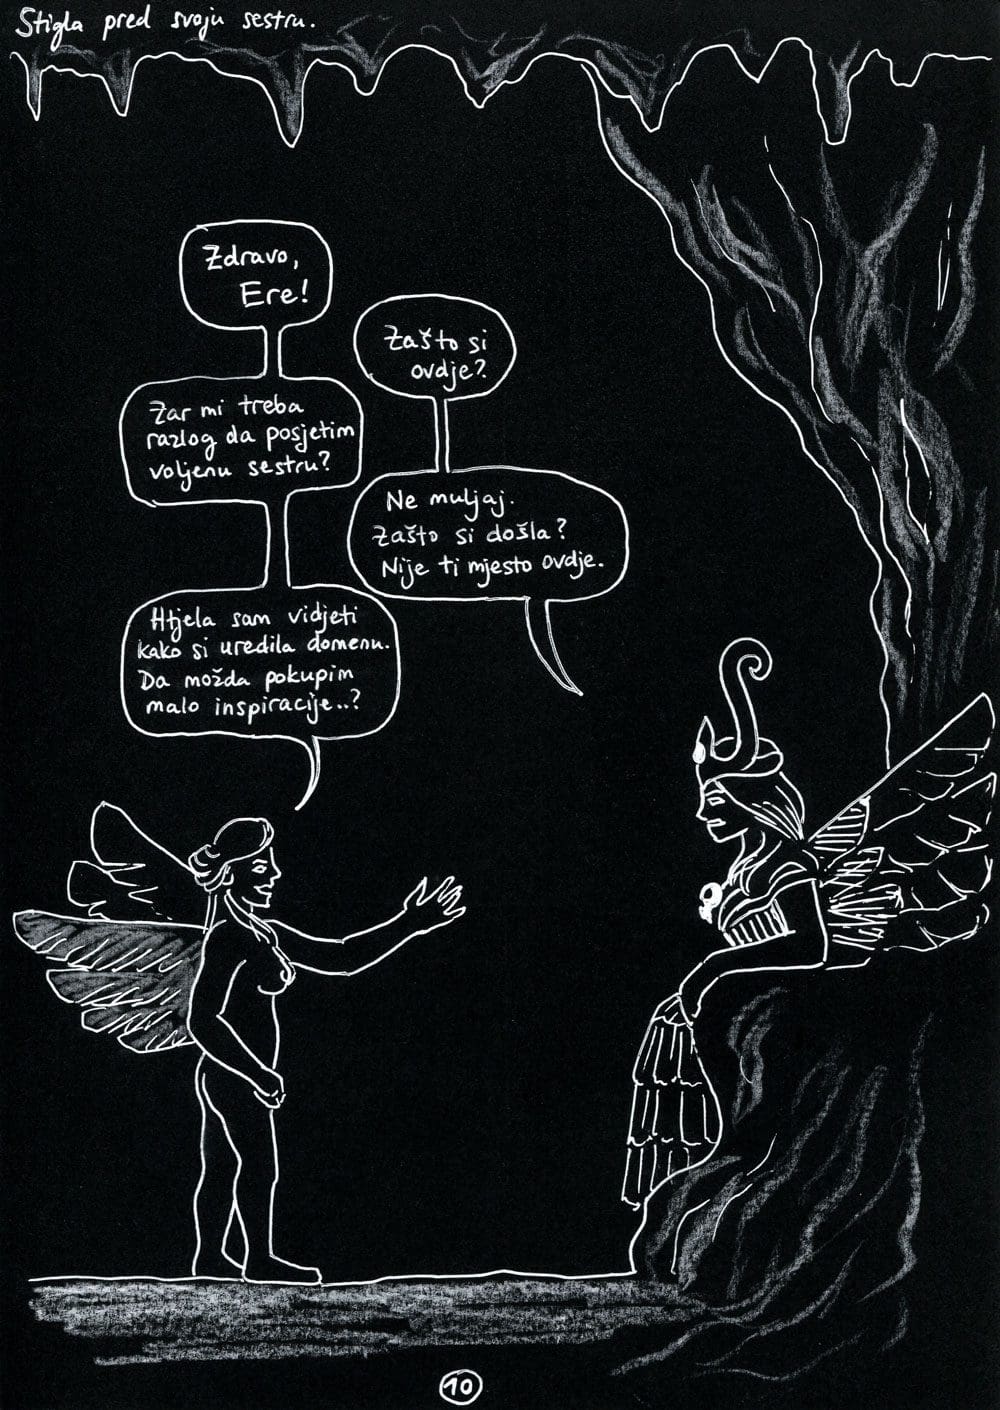 Stigla pred svoju sestru.
Zdravo,
Ere!
Zašto si
ovdje?
Žar mi treba
razlog da posjetim
voljenu sestru?
Ne muljaj.
Zašto si došla?
Nije ti mjesto ovdje.
Htjela sam vidjeti
kako si uredila domenu.
Da možda pokupim
malo inspiracije..?
10